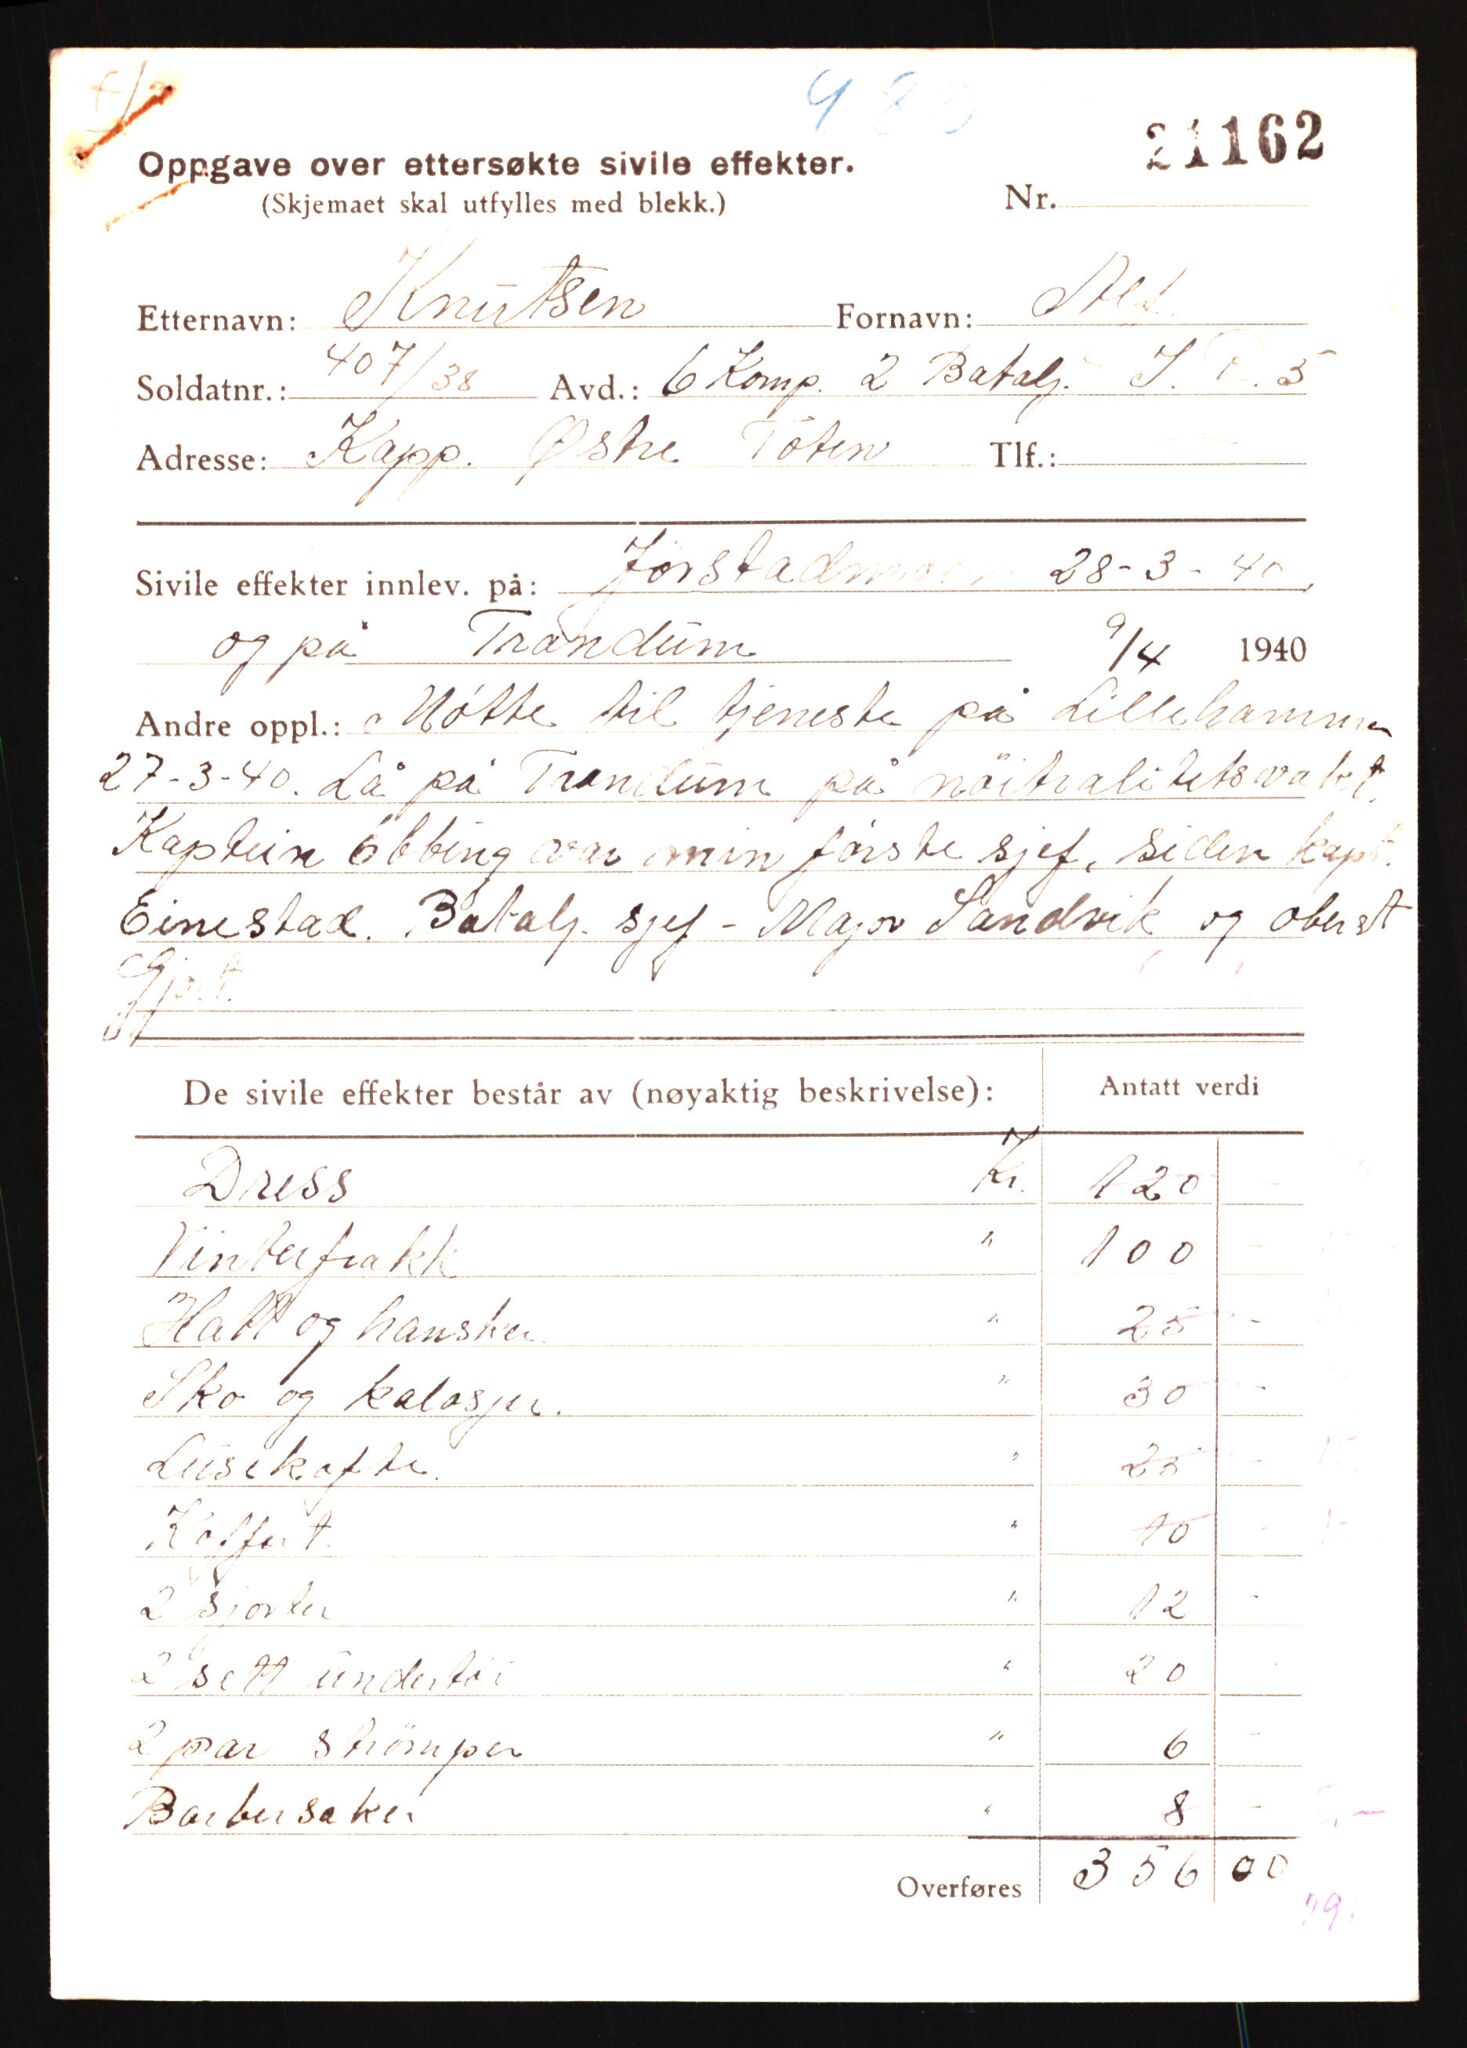 980
21162
Oppgave over ettersøkte sivile effekter.
(Skjemaet skal utfylles med blekk.)
Nr.
Etternavn: Knutsen Fornavn: Alf
Soldatnr.: 407/38 Avd.: 6 Komp. 2 Batalj. I. R. 5
Adresse: Kapp. Østre Toten Tlf.: —
Sivile effekter innlev. på: Jørstadmoen 28-3-40
og på Trandum 9/4 1940
Andre oppl.: Møtte til tjeneste på Lillehammer
27-3-40. Lå på Trandum på nöitralitetsvakt.
Kaptein Ebbing var min første sjef, siden kapt.
Einestad. Batalj. sjef - Major Sandvik og oberst
De sivile effekter består av (nøyaktig beskrivelse): Antatt verdi
Dress Kr. 120 -
Vinterfrakk " 100 -
Hatt og hansker. " 25 -
Sko og kalosjer. " 30 -
Lusekofte. " 25 -
Koffert. " 10 -
2 skjorter " 12 -
2 sett undertöi " 20 -
2 par strömper " 6 -
Barbersaker " 8 -
Overføres 356 00